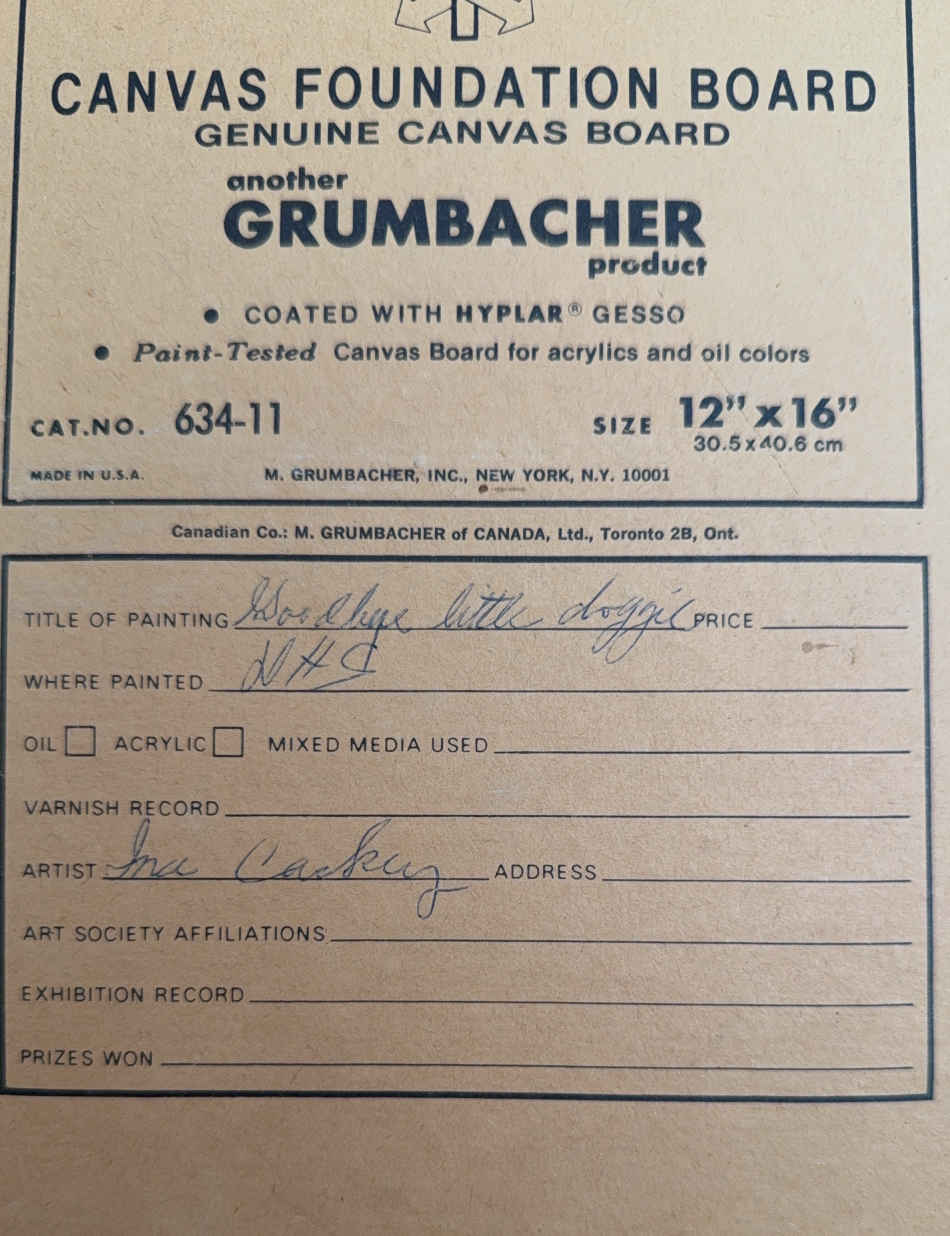 CANVAS FOUNDATION BOARD
GENUINE CANVAS BOARD
another
GRUMBACHER
product
• COATED WITH HYPLAR® GESSO
• Paint-Tested Canvas Board for acrylics and oil colors
CAT.NO. 634-11 SIZE 12" x 16"
30.5 x 40.6 cm
MADE IN U.S.A. M. GRUMBACHER, INC., NEW YORK, N.Y. 10001
Canadian Co.: M. GRUMBACHER of CANADA, Ltd., Toronto 2B, Ont.
TITLE OF PAINTING Goodbye little doggie PRICE
WHERE PAINTED
OIL ACRYLIC MIXED MEDIA USED
VARNISH RECORD
ARTIST Ina ADDRESS
ART SOCIETY AFFILIATIONS
EXHIBITION RECORD
PRIZES WON